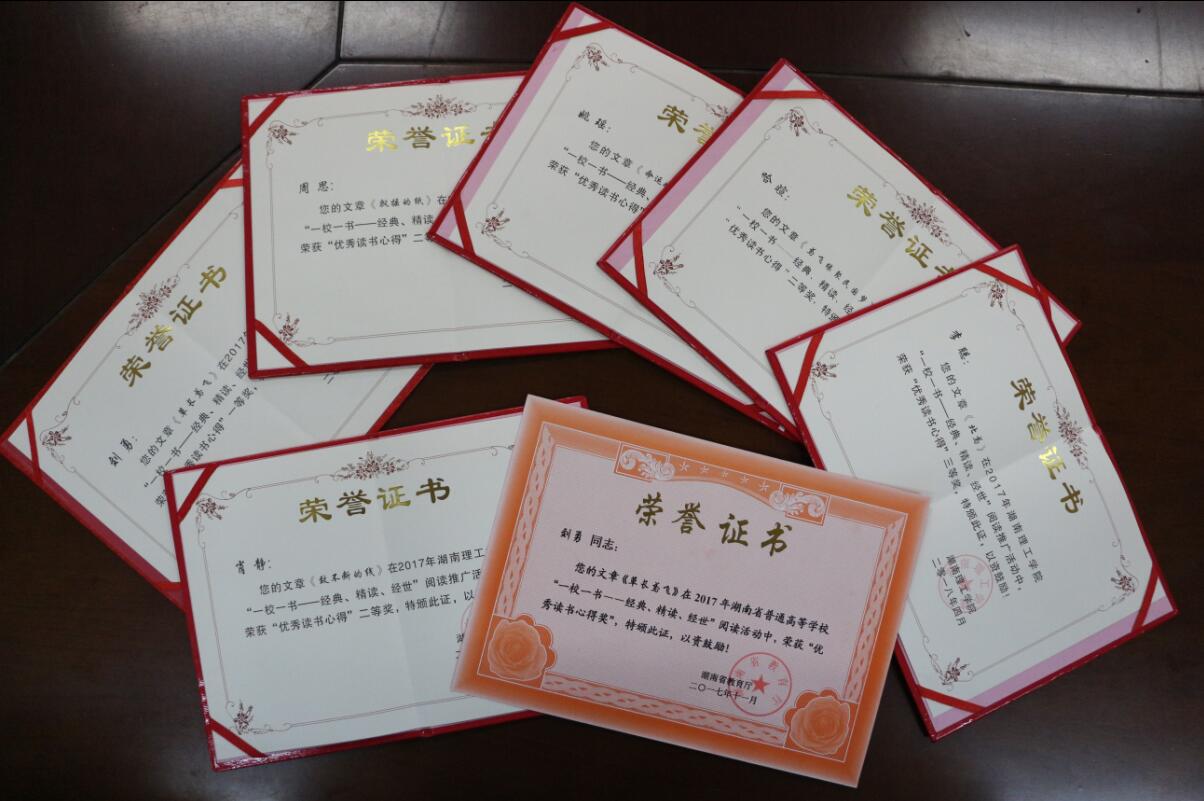 荣誉证书
剑勇：
您的文章《草长莺飞》在2017年
“一校一书——经典、精读、经世
优秀读书心得”一等奖，
荣誉证书
周思：
您的文章《
的纸》在
“一校一书——经典、精读
荣获“优秀读书心得”二
荣
姚瑶：
您的文章《命运
“一校一书——经典、
荣获“优秀读书心得
荣誉证
您的文章《莺飞
民国梦
“一校一书——经典、精读、经
“优秀读书心得”二等奖，特颁
荣誉证书
李聪：
您的文章《北
》在2017年湖南理工学院
“一校一书——经典、精读、经世”阅读推广活动中，
荣获“优秀读书心得”三等奖，特颁此证，以资鼓励！
湖南理工学院
二零一八年四月
荣誉证书
肖静：
您的文章《
的线》在2017年湖南理工
“一校一书——经典、精读、经世”阅读推广活
荣获“优秀读书心得”二等奖，特颁此证，以
荣誉证书
剑勇 同志：
您的文章《草长莺飞》在2017年湖南省普通高等学校
“一校一书——经典、精读、经世”阅读活动中，荣获“优
秀读书心得奖”，特颁此证，以资鼓励！
湖南省教育厅
二〇一七年十一月